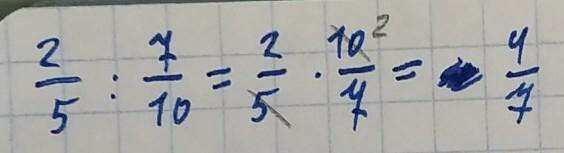 2/5 : 7/10 = 2/5 · 10²/7 = 4/7